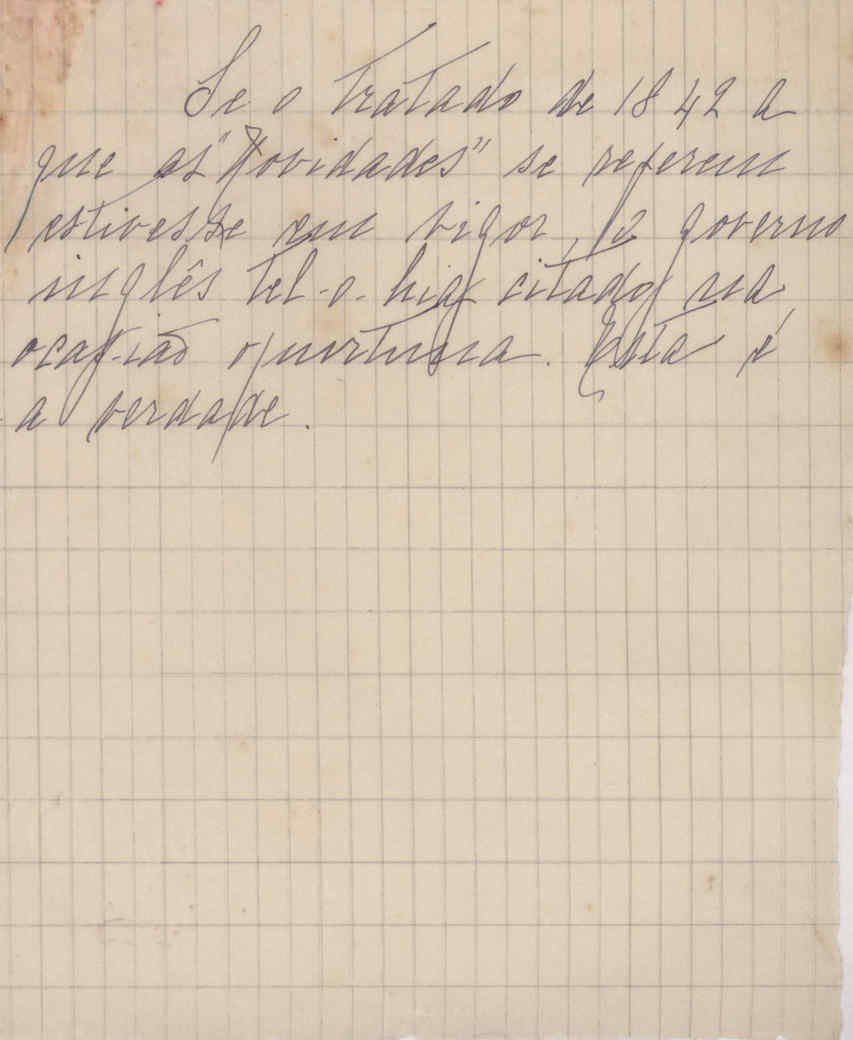 Se o tratado de 1842 a
que as "Novidades" se referem
estivesse em vigor, o governo
inglês tel-o-hia citado na
ocasião opurtuna. Esta é
a verdade.